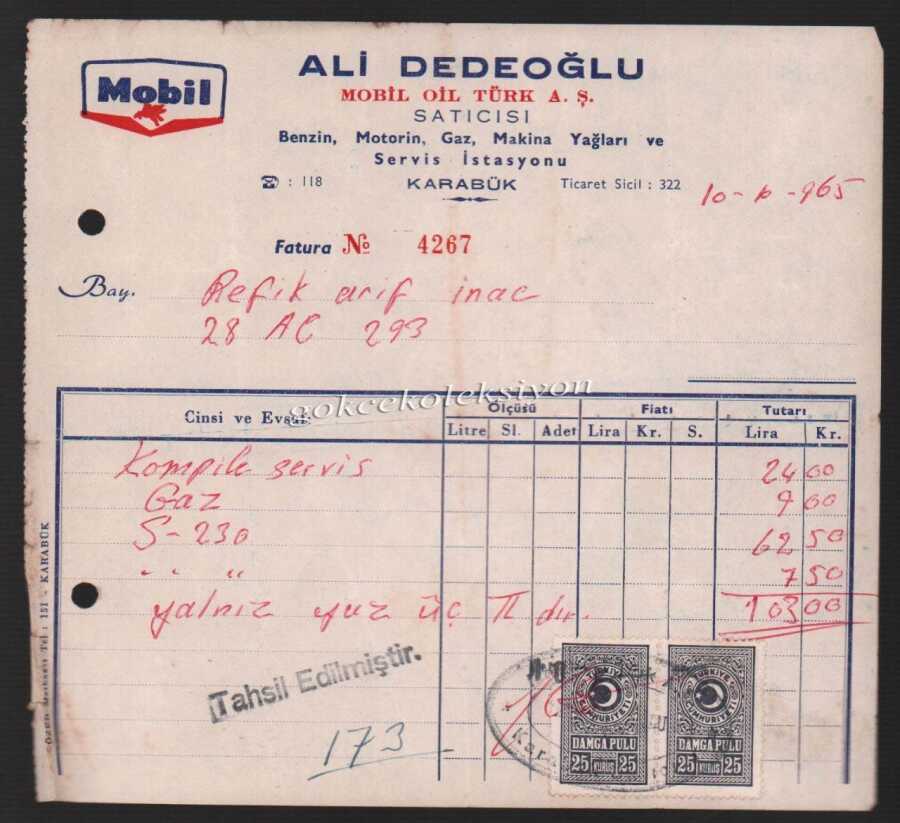 Mobil
ALİ DEDEOĞLU
MOBİL OİL TÜRK A. Ş.
SATICISI
Benzin, Motorin, Gaz, Makina Yağları ve
Servis İstasyonu
☎ : 118 KARABÜK Ticaret Sicil : 322
10- -965
Fatura № 4267
Bay. Refik arif inac
28 AC 293
gokcekoleksiyon
Cinsi ve Evsafı Ölçüsü Fiatı Tutarı
Litre Sl. Adet Lira Kr. S. Lira Kr.
Komple servis 24 00
Gaz 9 00
S-230 62 50
" " 7 50
yalnız yuz üç Tl dır. 103 00
Tahsil Edilmiştir.
173
TÜRKİYE CUMHURİYETİ
DAMGA PULU
25 KURUŞ 25
TÜRKİYE CUMHURİYETİ
DAMGA PULU
25 KURUŞ 25
Tel : 151 - KARABÜK